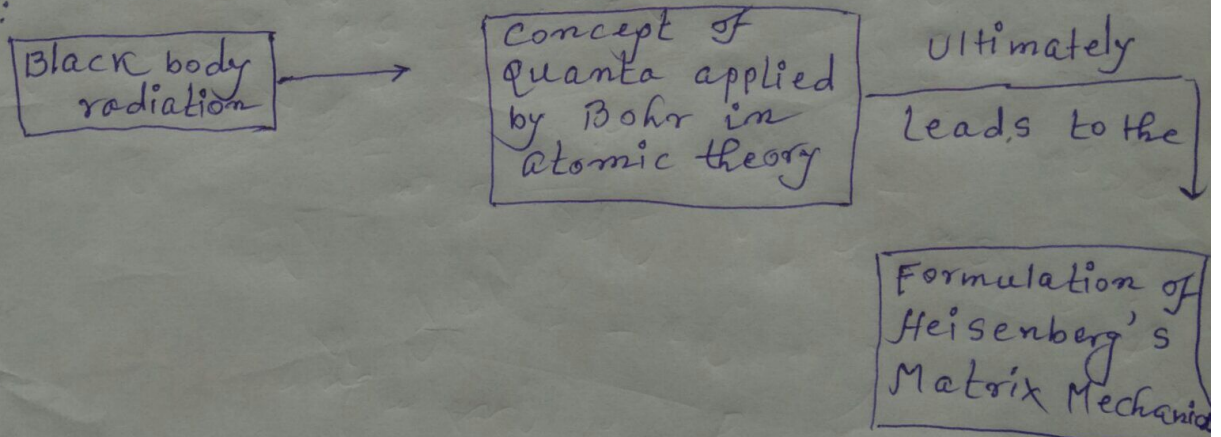 Black body
radiation
Concept of
Quanta applied
by Bohr in
atomic theory
Ultimately
Leads to the
Formulation of
Heisenberg's
Matrix Mechanic